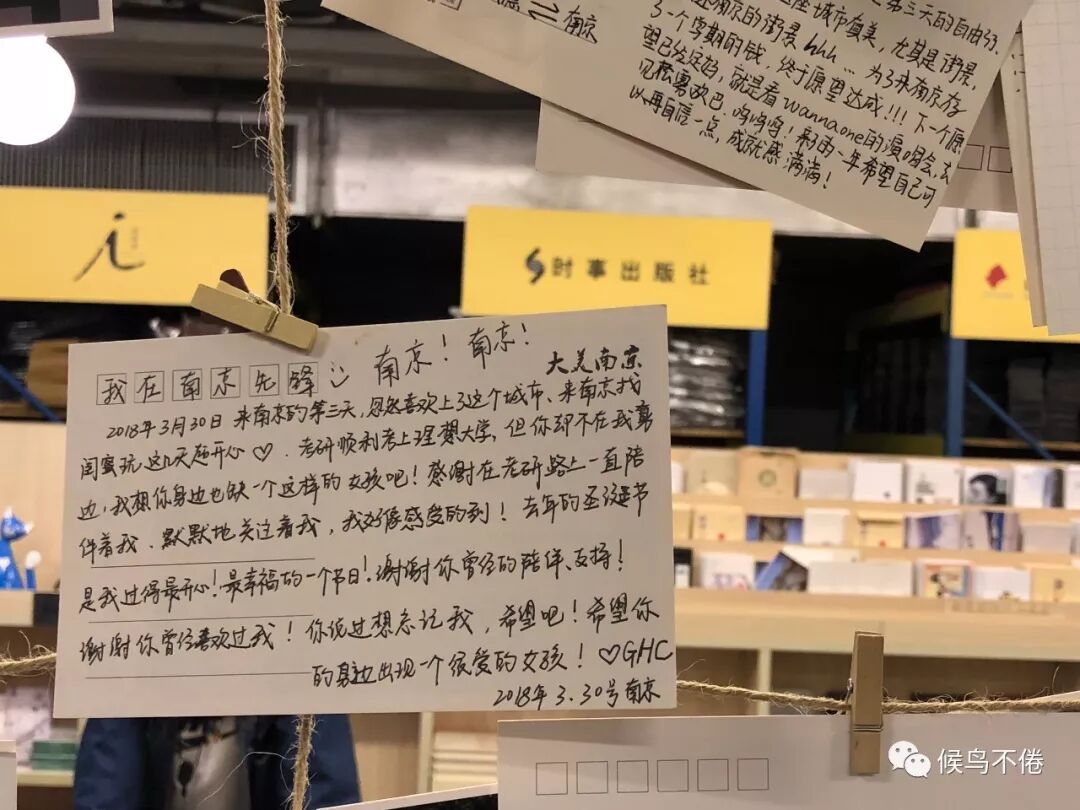 南京
第三天的自由行
座城市真美，尤其是街景，
南京的街景 hhh … 为了来南京存
了一个学期的钱，终于愿望达成！！！下一个愿
望已经许好，就是看wannaone的演唱会，去
以再自信一点，成就感满满！
时事出版社
我在南京先锋 南京！南京！
大美南京
2018年3月30日 来南京的第三天，忽然喜欢上了这个城市、来南京找
闺蜜玩这几天超开心♡．考研顺利考上理想大学，但你却不在我身
边，我想你身边也缺一个这样的女孩吧！感谢在考研路上一直陪
伴着我、默默地关注着我，我好像感受的到！去年的圣诞节
是我过得最开心！最幸福的一个节日！谢谢你曾经的陪伴、支持！
谢谢你曾经喜欢过我！你说过想忘记我，希望吧！希望你
的身边出现一个很爱的女孩！♡GHC
2018年3.30号南京
候鸟不倦